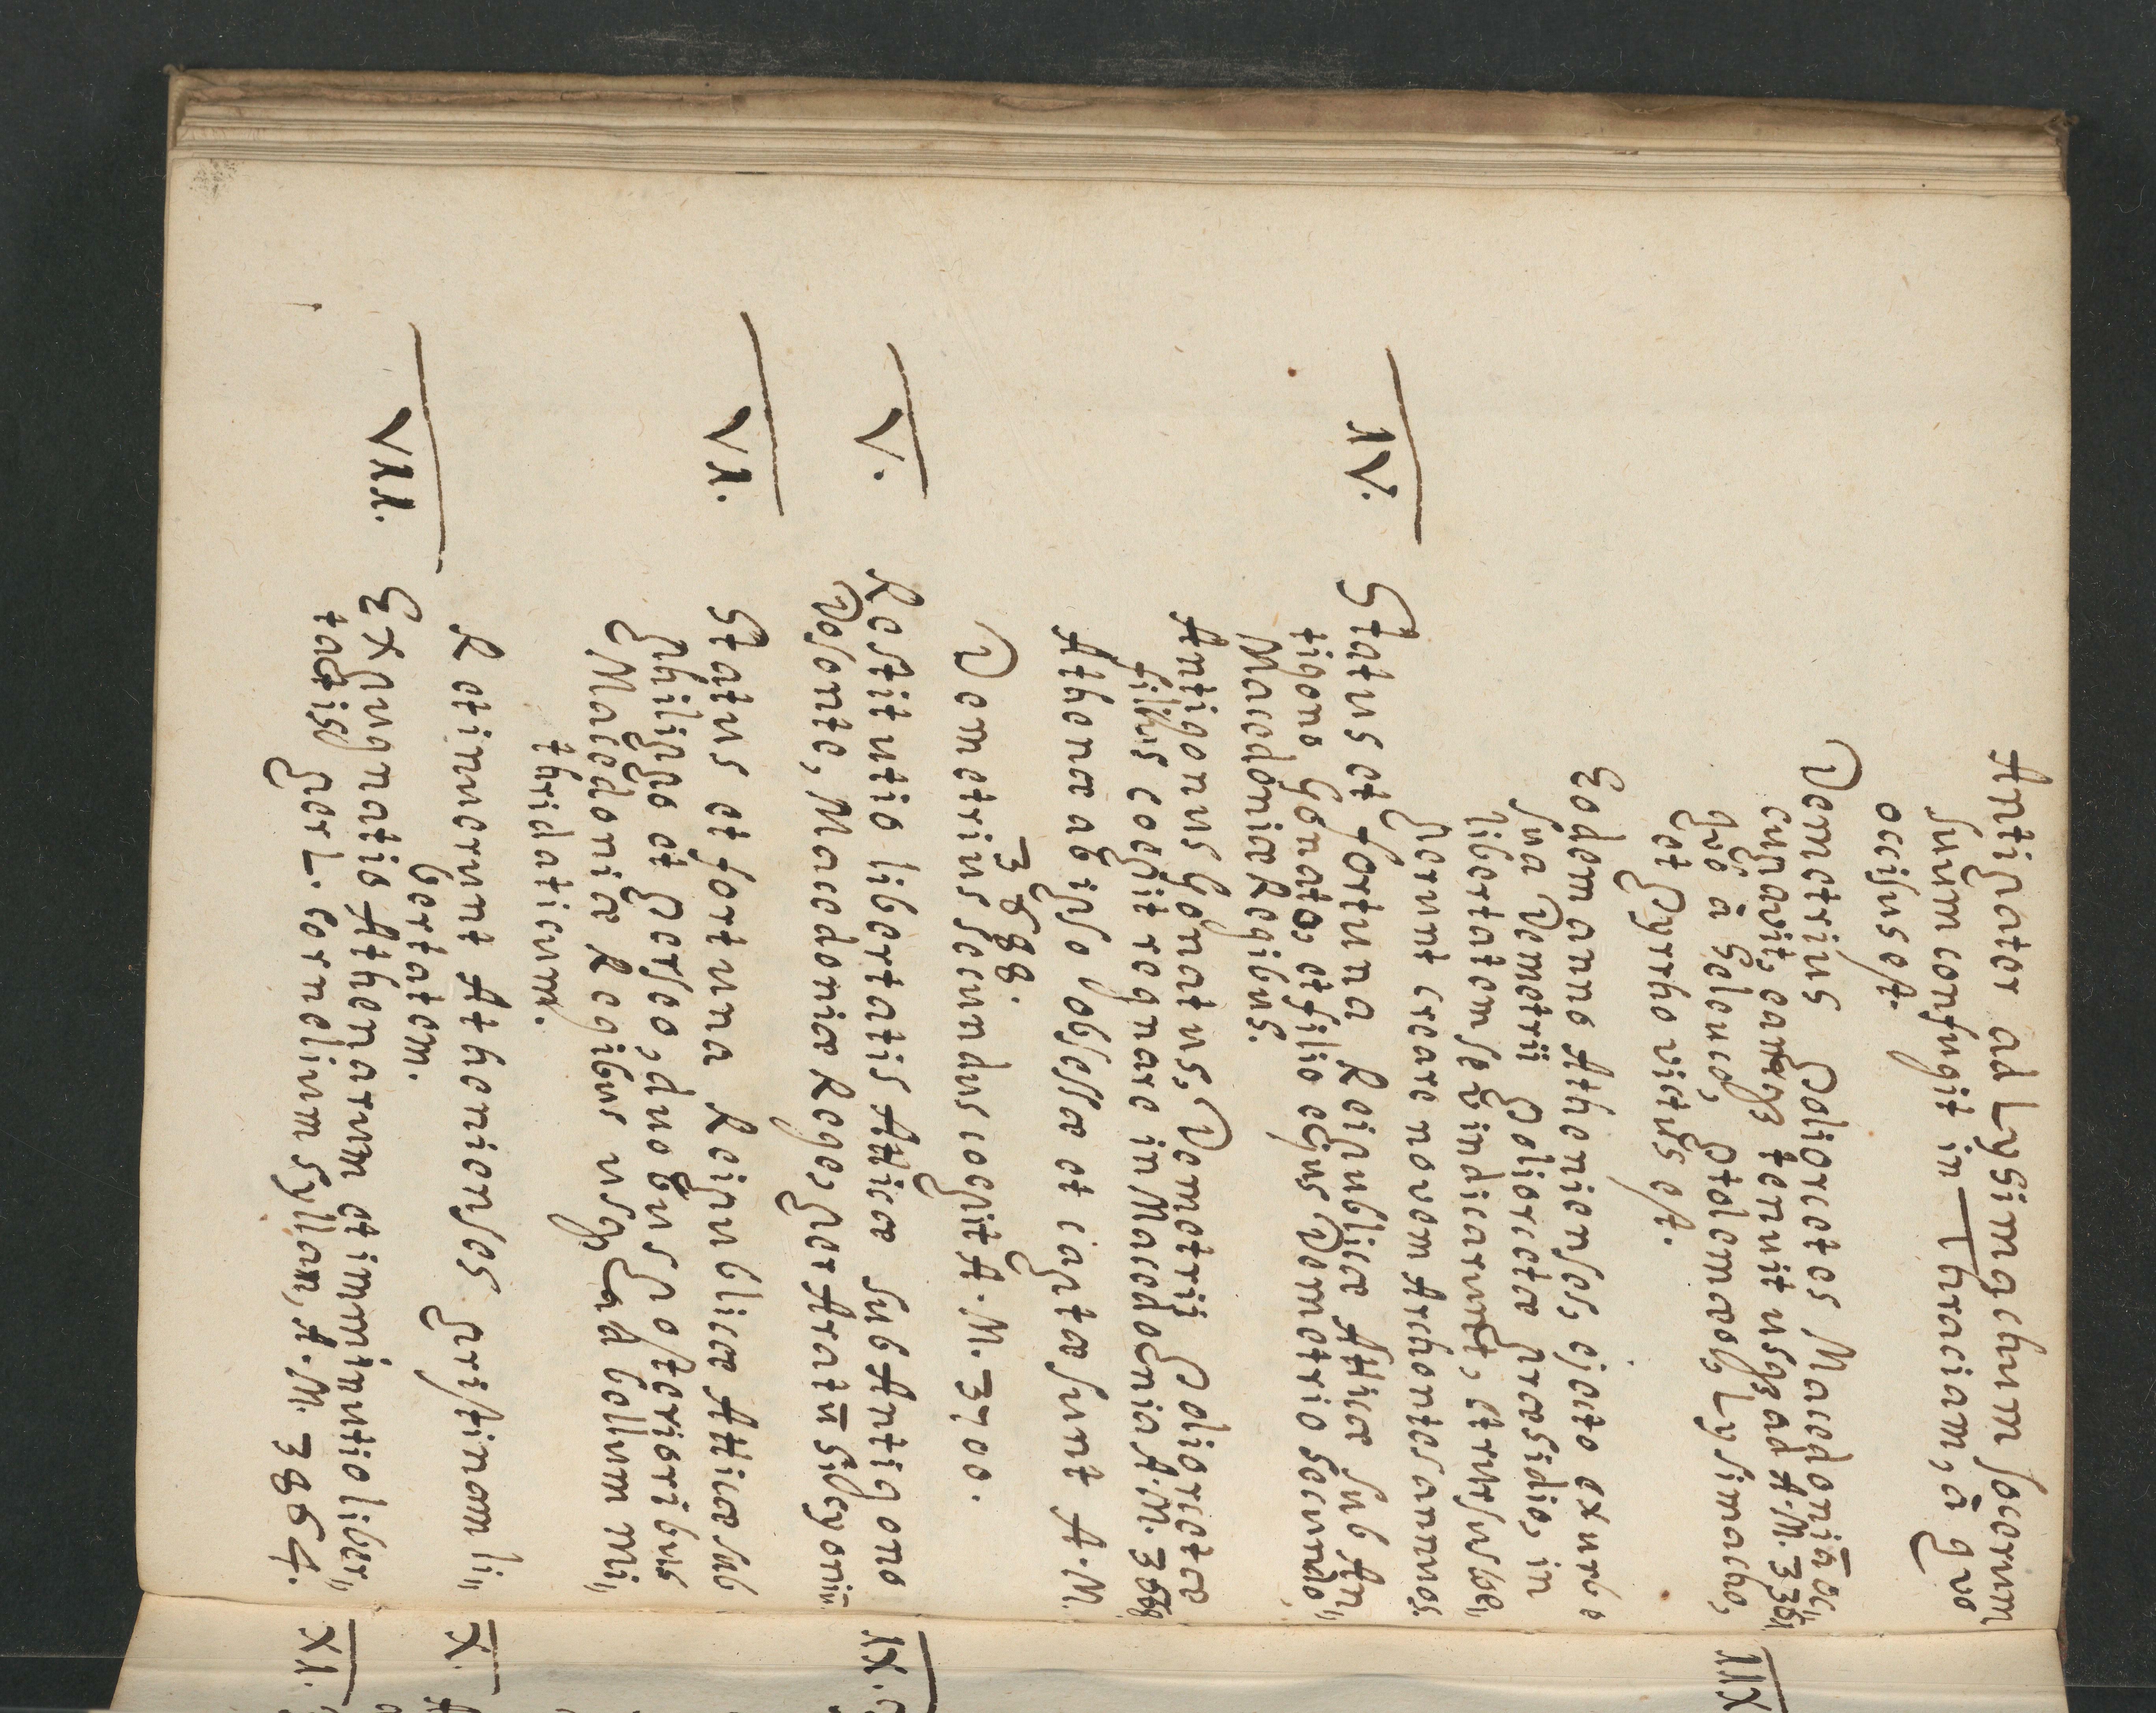 Antipater ad Lysimachum socerum
suum confugit in Thraciam, à quo
occisus est.
Demetrius Poliorcetes Macedoniâ oc„
cupavit, eamque tenuit usque ad A.M.
quo à Seleuco, Ptolemaeo, Lysimacho,
et Pyrrho victus est.
Eodem anno Athenienses, ejecto ex urbe
sua Demetrii Poliorcetae praesidio, in
libertatem se vindicarunt, et rursus coe„
perunt creare novem Archontes annuos.
IV.
Status et fortuna Reipublicae Atticae sub An„
tigono Gonata, et filio ejus Demetrio secundo
Macedoniae Regibus.
Antigonus Gonatus, Demetrii Poliorcetae
filius coepit regnare in Macedonia A.M.
Athenae ab ipso obsessae et captae sunt A.M.
3688.
Demetrius secundus coepit A.M. 3700.
V.
Restitutio libertatis Atticae sub Antigono
Dosonte, Macedoniae Rege, per Aratum Sicyoni„
VI.
Status et fortuna Reipublicae Atticae sub
Philippo et Perseo, duobus posterioribus
Macedoniae Regibus usque ad bellum Mi„
thridaticum.
Retinuerunt Athenienses pristinam li„
bertatem.
VII.
Expugnatio Athenarum et imminutio liber„
tatis per L. Cornelium Syllam, A.M. 3864.
XII
IX.
X.
XI.